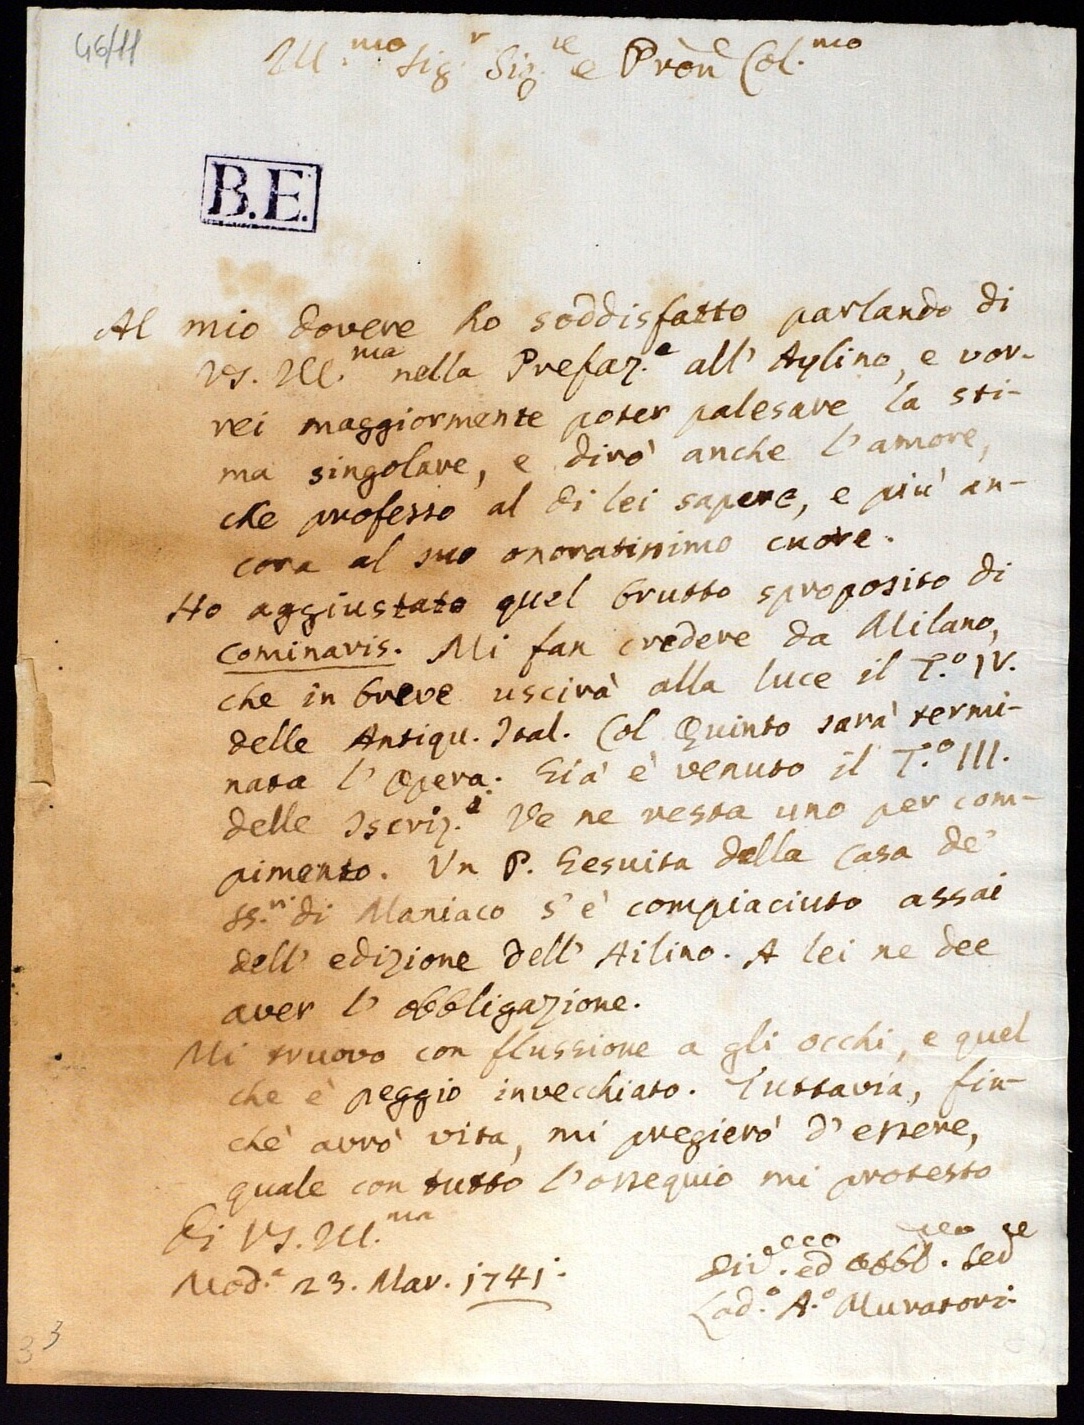 46/11
Ill.mo Sig.r Sig.re e Pron Col.mo
B.E.
Al mio dovere ho soddisfatto parlando di
VS. Ill.ma nella Prefaz.e all' Aylino, e vor-
rei maggiormente poter palesare la sti-
ma singolare, e dirò anche l'amore,
che professo al di lei sapere, e più an-
cora al suo onoratissimo cuore.
Ho aggiustato quel brutto sproposito di
Cominavis. Mi fan credere da Milano,
che in breve uscirà alla luce il T.o IV.
delle Antiqu. Ital. Col Quinto sarà termi-
nata l'Opera. Già è venuto il T.o III.
delle Iscriz.i Ve ne resta uno per com-
pimento. Un P. Gesuita della Casa de'
SS.ri di Maniaco s'è compiaciuto assai
dell' edizione dell' Ailino. A lei ne dee
aver l' obbligazione.
Mi truovo con flussione a gli occhi, e quel
che è peggio invecchiato. Tuttavia, fin-
chè avrò vita, mi pregierò d'essere,
quale con tutto l'ossequio mi protesto
Di VS. Ill.ma
Mod.a 23. Mar. 1741.
Div. ed obbl. Se
Lod.o A.o Muratori.
33